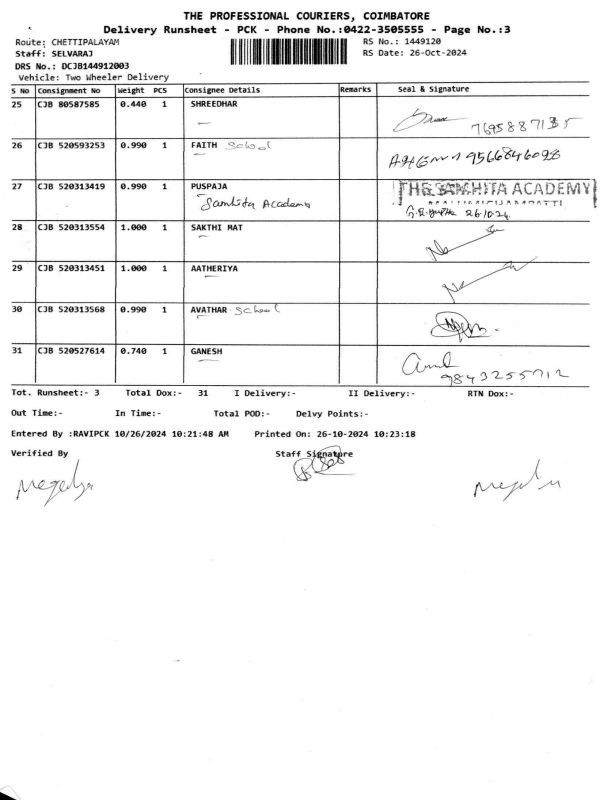 THE PROFESSIONAL COURIERS, COIMBATORE
Delivery Runsheet - PCK - Phone No.:0422-3505555 - Page No.:3
Route: CHETTIPALAYAM RS No.: 1449120
Staff: SELVARAJ RS Date: 26-Oct-2024
DRS No.: DCJB144912003
Vehicle: Two Wheeler Delivery
S No Consignment No Weight PCS Consignee Details Remarks Seal & Signature
25 CJB 80587585 0.440 1 SHREEDHAR
7695887135
26 CJB 520593253 0.990 1 FAITH School
9566846098
27 CJB 520313419 0.990 1 PUSPAJA THE SAMHITA ACADEMY
Samhita Academy
26.10.24
28 CJB 520313554 1.000 1 SAKTHI MAT
29 CJB 520313451 1.000 1 AATHERIYA
30 CJB 520313568 0.990 1 AVATHAR School
31 CJB 520527614 0.740 1 GANESH
9843255712
Tot. Runsheet:- 3 Total Dox:- 31 I Delivery:- II Delivery:- RTN Dox:-
Out Time:- In Time:- Total POD:- Delvy Points:-
Entered By :RAVIPCK 10/26/2024 10:21:48 AM Printed On: 26-10-2024 10:23:18
Verified By Staff Signature